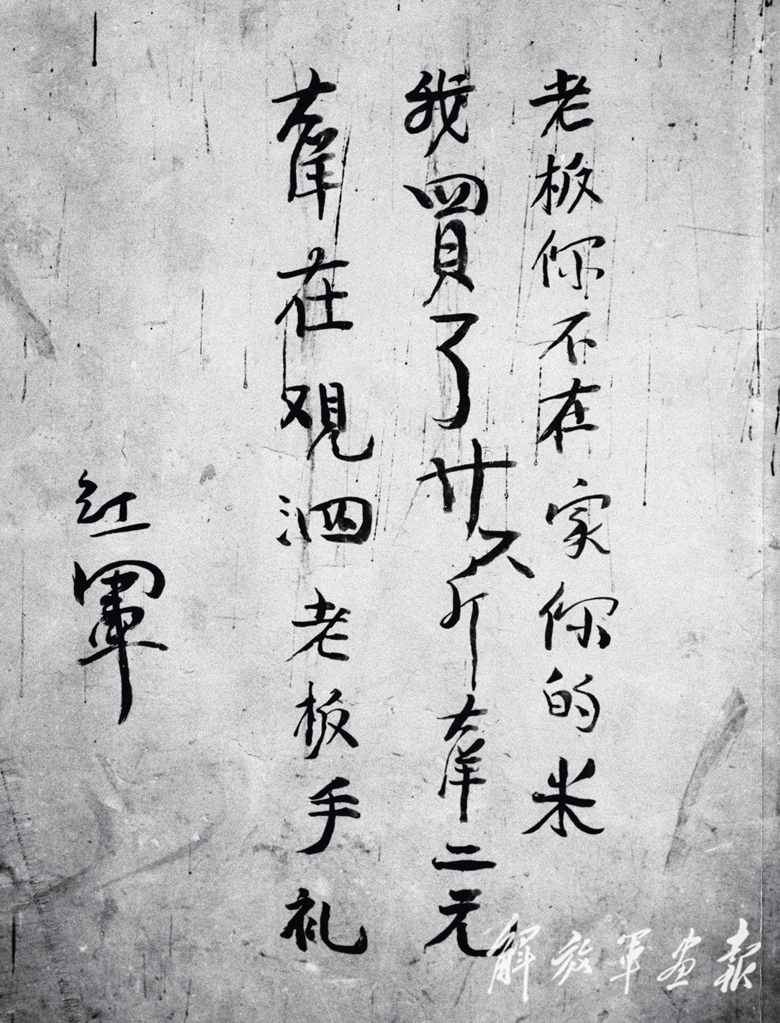 老板你不在家你的米
我買了廿六斤大洋二元
大洋在观泗老板手礼
红軍
解放軍画报